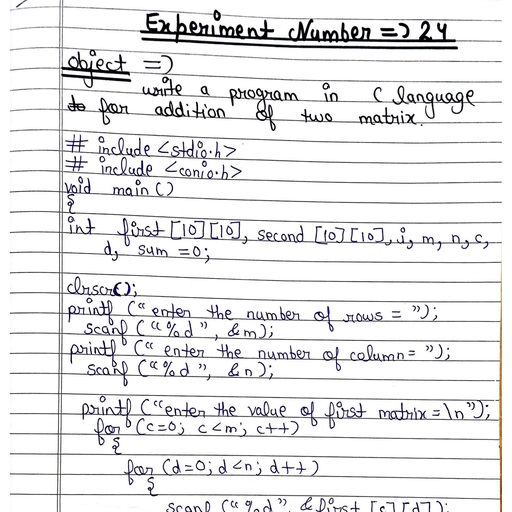 Experiment Number => 24
object =>
write a program in C language
for addition of two matrix.
# include <stdio.h>
# include <conio.h>
void main()
{
int first [10][10], second [10][10], i, m, n, c,
d, sum = 0;
clrscr();
printf ("enter the number of rows = ");
scanf ("%d", &m);
printf (" enter the number of column = ");
scanf ("%d", &n);
printf ("enter the value of first matrix = \n");
for (c=0; c<m; c++)
{
for (d=0; d<n; d++)
{
scanf ("%d", &first [c][d]);